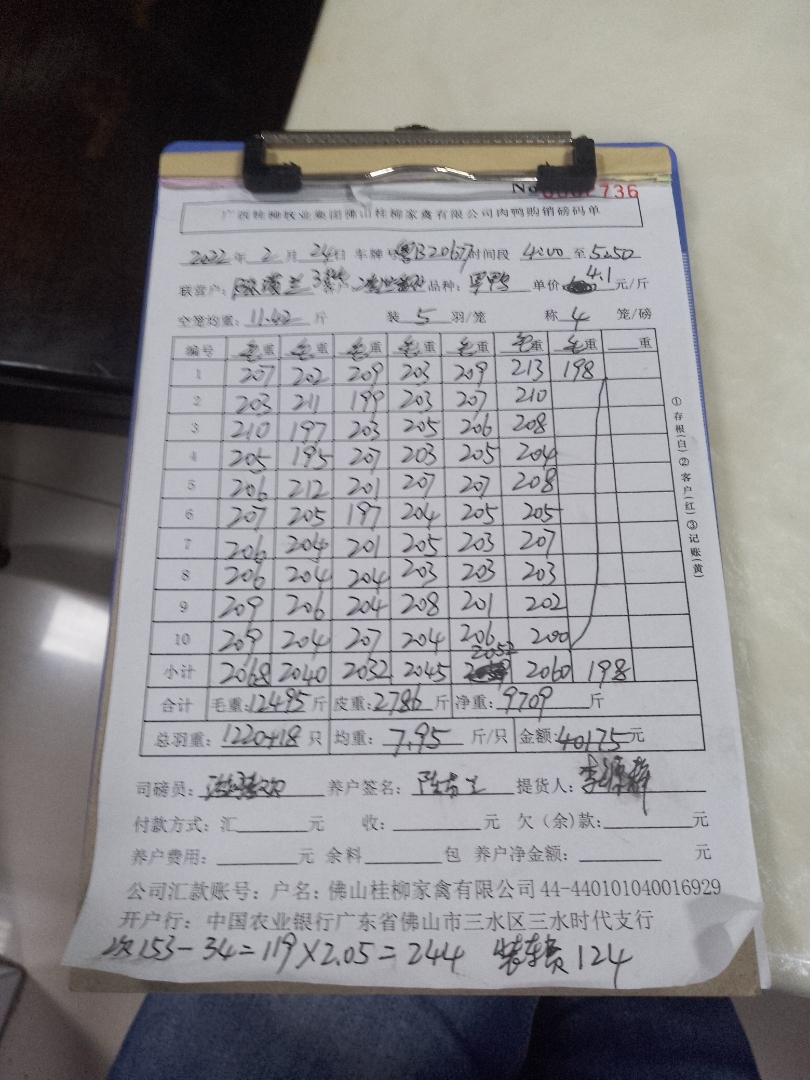 No 736
广西桂柳牧业集团佛山桂柳家禽有限公司肉鸭购销磅码单
2022年 2 月 24日 车牌 粤B2067 时间段 4:00 至 5:50
联营户: 陈 兰 客户 品种: 单价 4.1 元/斤
空笼均重: 11.42 斤 装 5 羽/笼 称 4 笼/磅
编号 毛重 毛重 毛重 毛重 毛重 毛重 毛重 重
1 207 202 209 203 209 213 198
2 203 211 199 203 207 210
3 210 197 203 205 206 208
4 205 195 207 203 205 204
5 206 212 201 207 207 208
6 207 205 197 204 205 205
7 206 204 201 205 203 207
8 206 204 204 203 203 203
9 209 206 204 208 201 202
10 209 204 207 204 206 200
小计 2068 2040 2032 2045 2052 2060 198
合计 毛重:12495斤 皮重:2786斤 净重:9709斤
总羽重: 1220+18 只 均重: 7.95 斤/只 金额:40175元
司磅员: 养户签名: 陈 兰 提货人: 李
付款方式: 汇 元 收: 元 欠(余)款: 元
养户费用: 元 余料 包 养户净金额: 元
公司汇款账号: 户名: 佛山桂柳家禽有限公司 44-440101040016929
开户行: 中国农业银行广东省佛山市三水区三水时代支行
次153-34=119×2.05=244 装车费124
①存根(白)②客户(红)③记账(黄)